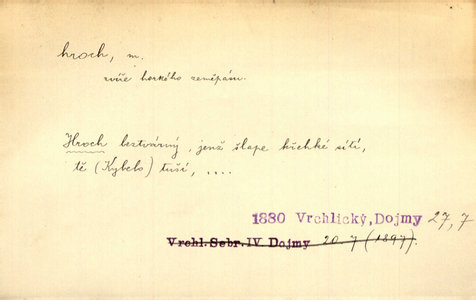 hroch, m.
zvíře horkého zeměpám.
Hroch beztvárný, jenž šlape křehké sítí,
tě (Kybelo) tuší, ....
1880 Vrchlický, Dojmy 27,7
Vrchl. Sebr. IV. Dojmy 20.7 (1897)